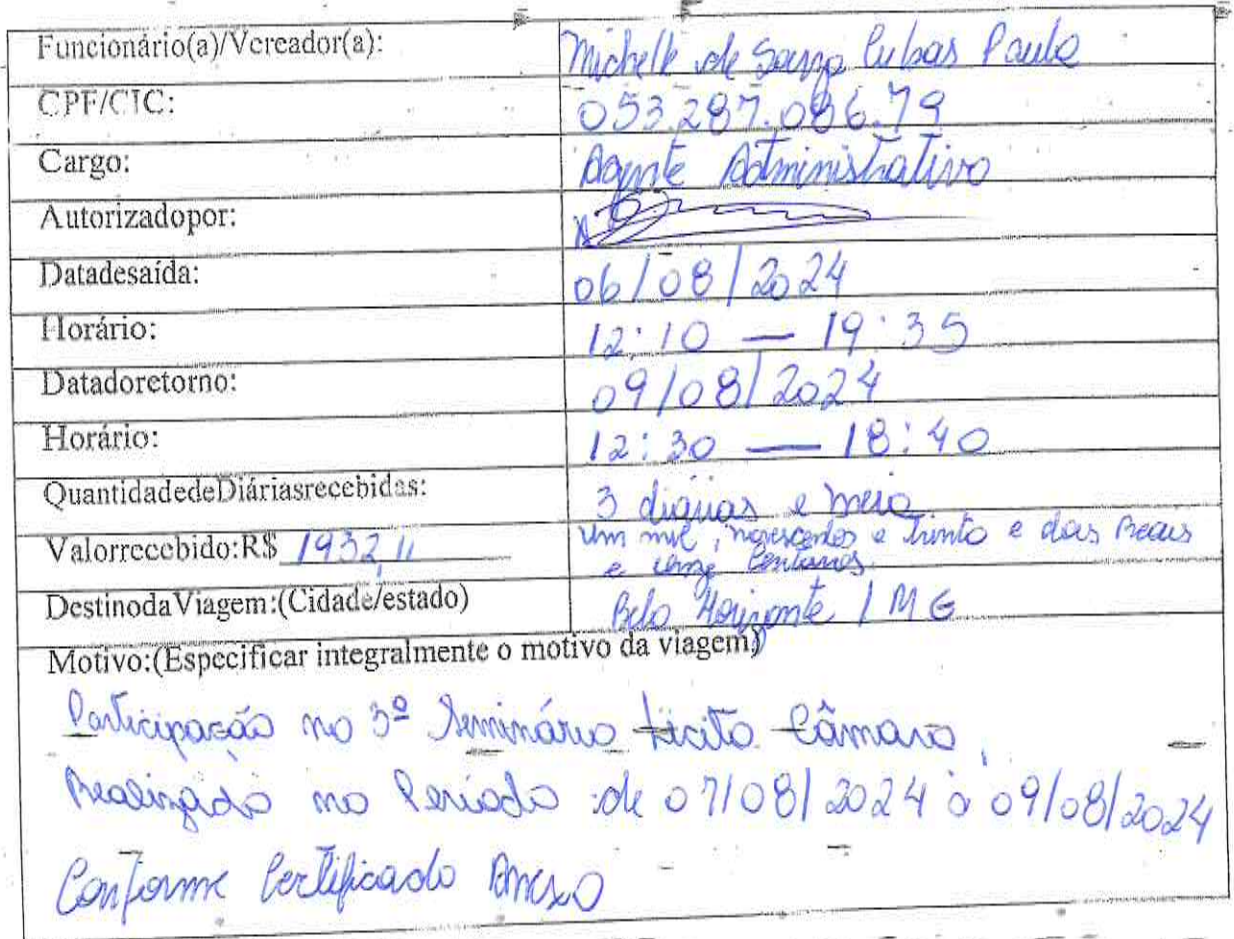 Funcionário(a)/Vereador(a): Michelle de Souza Cubas Paula
CPF/CIC: 053.287.086.79
Cargo: Agente Administrativo
Autorizadopor:
Datadesaída: 06/08/2024
Horário: 12:10 — 19:35
Datadoretorno: 09/08/2024
Horário: 12:30 — 18:40
QuantidadedeDiáriasrecebidas: 3 diárias e meia
Valorrecebido:R$ 1932,11 Um mil, novescentos e trinta e dois Reais
e onze Centavos.
DestinodaViagem:(Cidade/estado) Belo Horizonte / MG
Motivo:(Especificar integralmente o motivo da viagem)
Participação no 3º Seminário Licita Câmara,
Realizado no Período de 07/08/2024 à 09/08/2024
Conforme Certificado Anexo